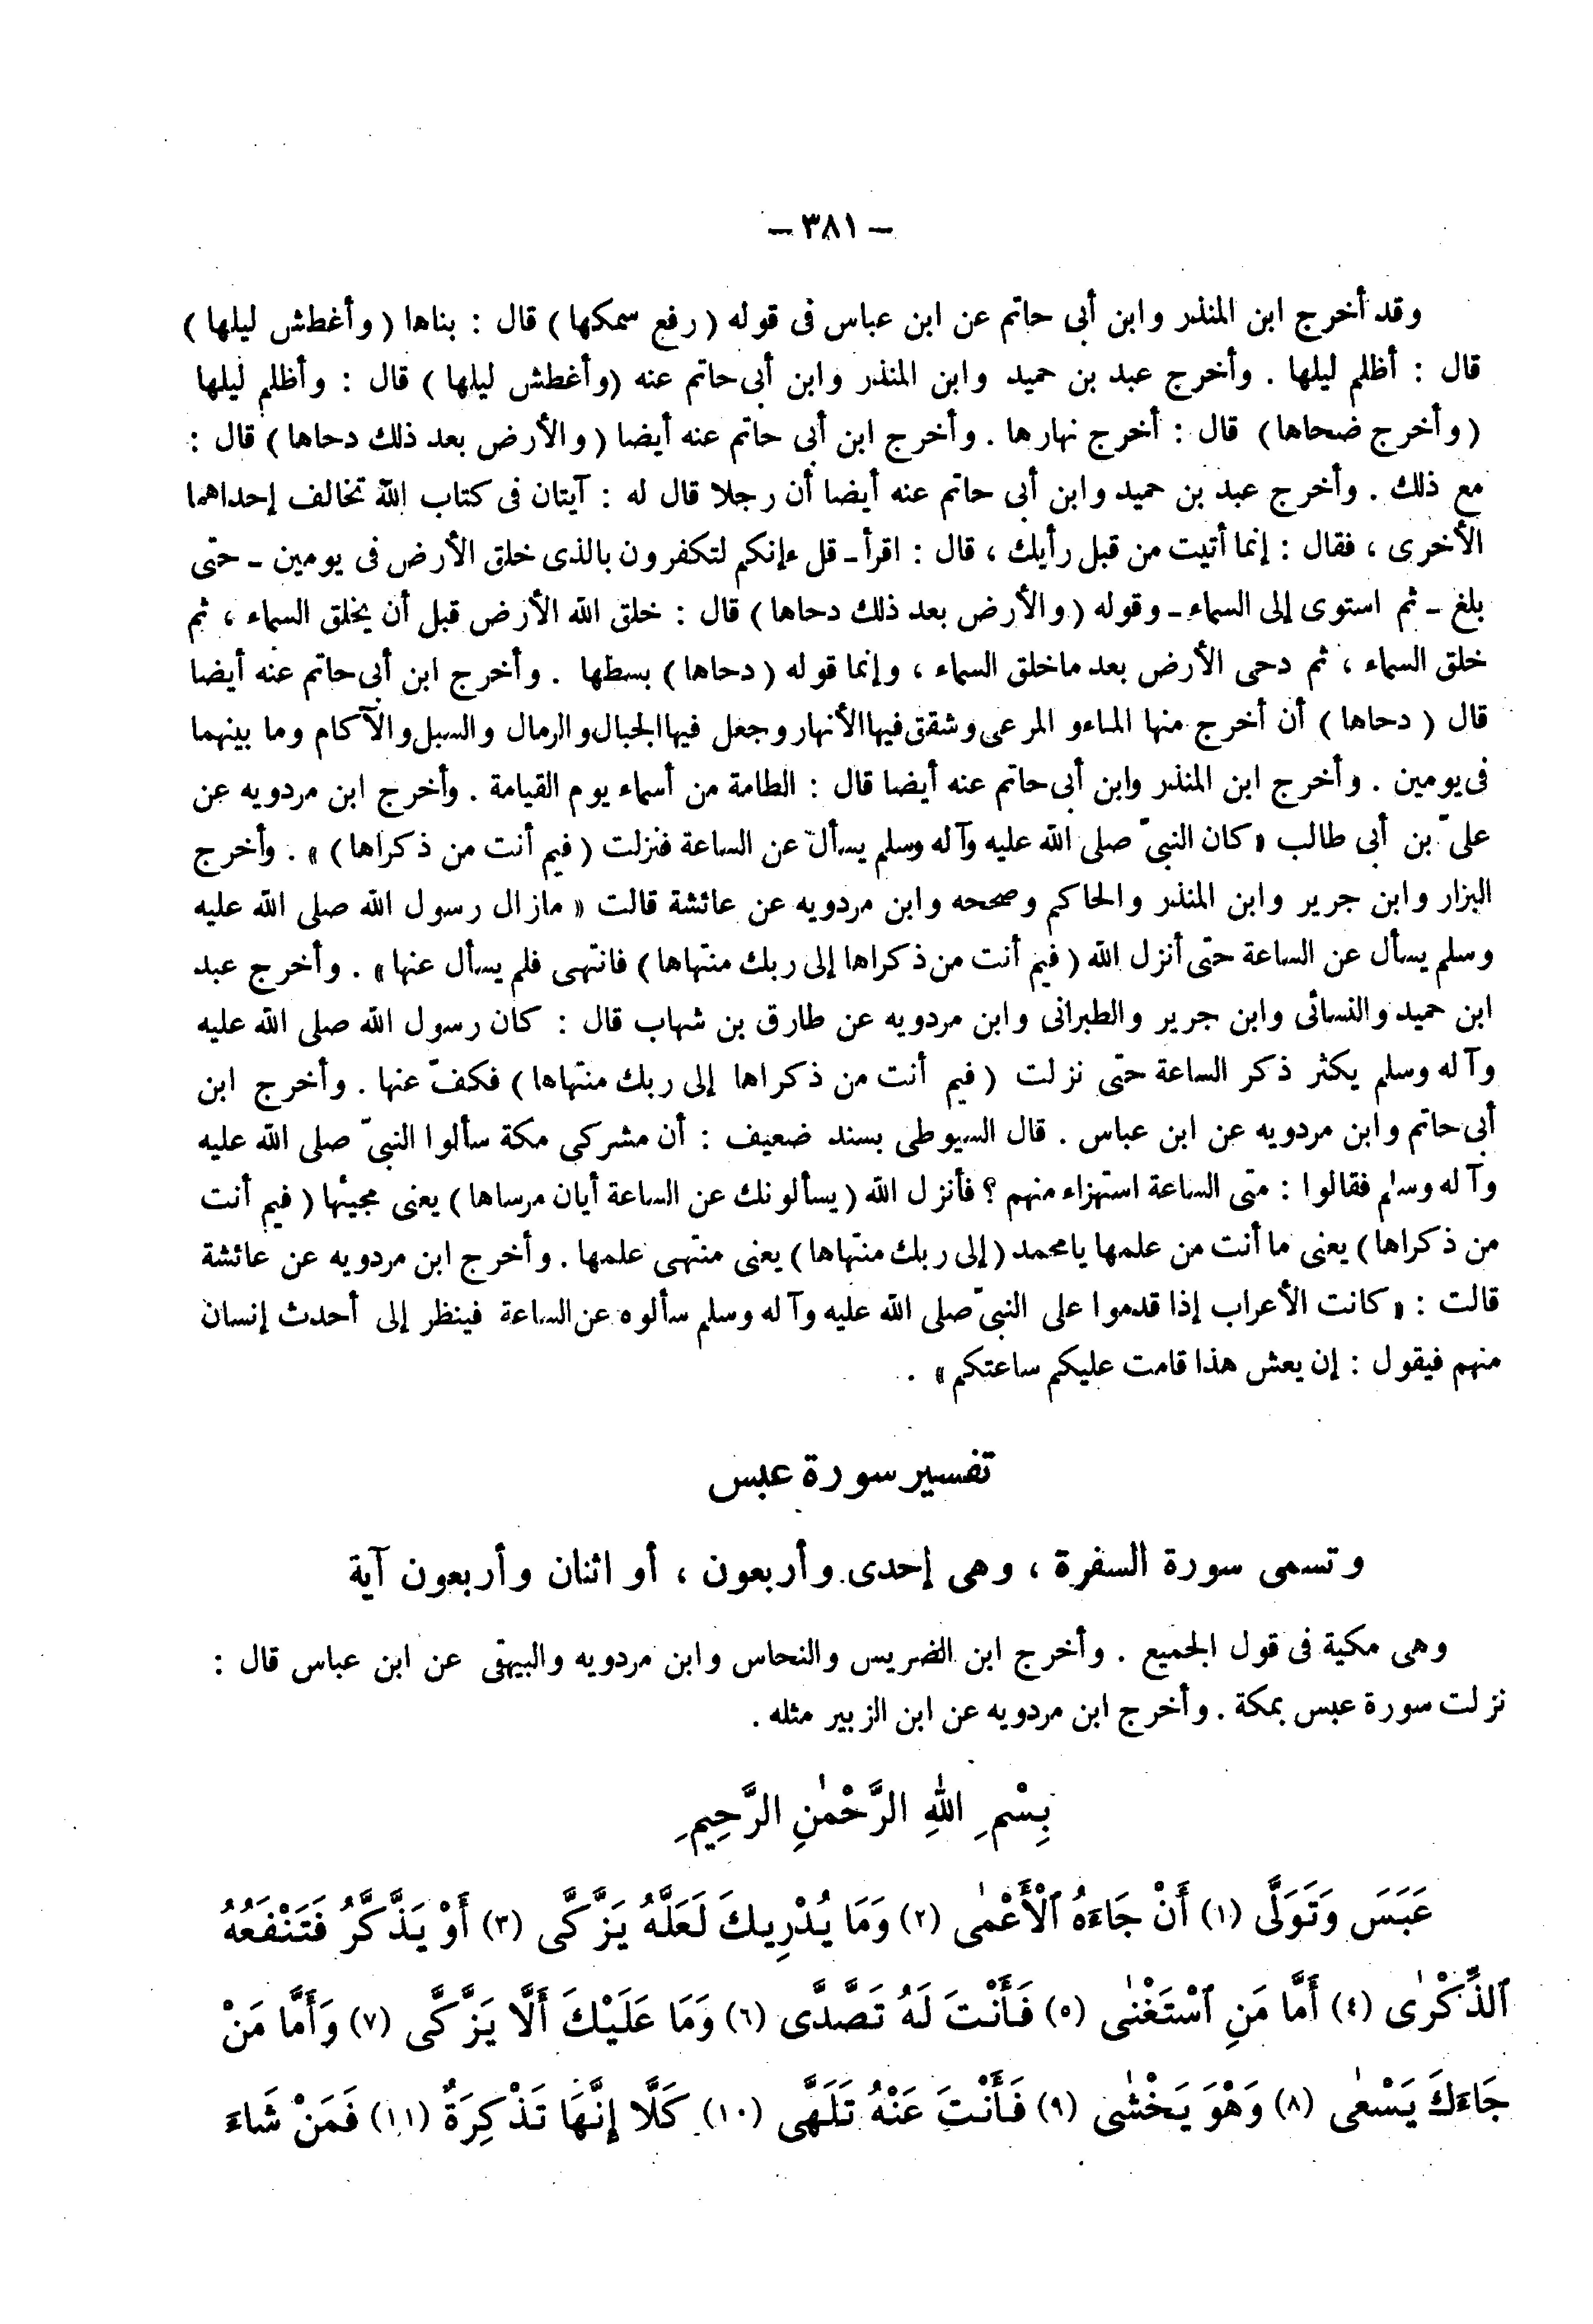 – ٣٨١ –
وقد أخرج ابن المنذر وابن أبى حاتم عن ابن عباس فى قوله ( رفع سمكها ) قال : بناها ( وأغطش ليلها )
قال : أظلم ليلها . وأخرج عبد بن حميد وابن المنذر وابن أبى حاتم عنه ( وأغطش ليلها ) قال : وأظلم ليلها
( وأخرج ضحاها ) قال : أخرج نهارها . وأخرج ابن أبى حاتم عنه أيضا ( والأرض بعد ذلك دحاها ) قال :
مع ذلك . وأخرج عبد بن حميد وابن أبى حاتم عنه أيضا أن رجلا قال له : آيتان فى كتاب الله تخالف إحداهما
الأخرى ، فقال : إنما أتيت من قبل رأيك ، قال : اقرأ ــ قل ءإنكم لتكفرون بالذى خلق الأرض فى يومين ــ حتى
بلغ ــ ثم استوى إلى السماء ــ وقوله ( والأرض بعد ذلك دحاها ) قال : خلق الله الأرض قبل أن يخلق السماء ، ثم
خلق السماء ، ثم دحى الأرض بعد ماخلق السماء ، وإنما قوله ( دحاها ) بسطها . وأخرج ابن أبى حاتم عنه أيضا
قال ( دحاها ) أن أخرج منها الماء والمرعى وشقق فيها الأنهار وجعل فيها الجبال والرمال والسبل والآكام وما بينهما
فى يومين . وأخرج ابن المنذر وابن أبى حاتم عنه أيضا قال : الطامة من أسماء يوم القيامة . وأخرج ابن مردويه عن
علىّ بن أبى طالب « كان النبىّ صلى الله عليه وآله وسلم يسأل عن الساعة فنزلت ( فيم أنت من ذكراها ) » . وأخرج
البزار وابن جرير وابن المنذر والحاكم وصححه وابن مردويه عن عائشة قالت « مازال رسول الله صلى الله عليه
وسلم يسأل عن الساعة حتى أنزل الله ( فيم أنت من ذكراها إلى ربك منتهاها ) فانتهى فلم يسأل عنها » . وأخرج عبد
ابن حميد والنسائى وابن جرير والطبرانى وابن مردويه عن طارق بن شهاب قال : كان رسول الله صلى الله عليه
وآله وسلم يكثر ذكر الساعة حتى نزلت ( فيم أنت من ذكراها إلى ربك منتهاها ) فكفّ عنها . وأخرج ابن
أبى حاتم وابن مردويه عن ابن عباس . قال السيوطى بسند ضعيف : أن مشركى مكة سألوا النبىّ صلى الله عليه
وآله وسلم فقالوا : متى الساعة استهزاء منهم ؟ فأنزل الله ( يسألونك عن الساعة أيان مرساها ) يعنى مجيئها ( فيم أنت
من ذكراها ) يعنى ما أنت من علمها يامحمد ( إلى ربك منتهاها ) يعنى منتهى علمها . وأخرج ابن مردويه عن عائشة
قالت : « كانت الأعراب إذا قدموا على النبىّ صلى الله عليه وآله وسلم سألوه عن الساعة فينظر إلى أحدث إنسان
منهم فيقول : إن يعش هذا قامت عليكم ساعتكم » .
تفسير سورة عبس
وتسمى سورة السفرة ، وهى إحدى وأربعون ، أو اثنان وأربعون آية
وهى مكية فى قول الجميع . وأخرج ابن الضريس والنحاس وابن مردويه والبيهقى عن ابن عباس قال :
نزلت سورة عبس بمكة . وأخرج ابن مردويه عن ابن الزبير مثله .
بِسْمِ اللهِ الرَّحْمٰنِ الرَّحِيمِ
عَبَسَ وَتَوَلَّى (١) أَنْ جَاءَهُ ٱلْأَعْمٰى (٢) وَمَا يُدْرِيكَ لَعَلَّهُ يَزَّكَّى (٣) أَوْ يَذَّكَّرُ فَتَنْفَعُهُ
ٱلذِّكْرٰى (٤) أَمَّا مَنِ ٱسْتَغْنٰى (٥) فَأَنْتَ لَهُ تَصَّدَّى (٦) وَمَا عَلَيْكَ أَلَّا يَزَّكَّى (٧) وَأَمَّا مَنْ
جَاءَكَ يَسْعٰى (٨) وَهْوَ يَخْشٰى (٩) فَأَنْتَ عَنْهُ تَلَهَّى (١٠) كَلَّا إِنَّهَا تَذْكِرَةٌ (١١) فَمَنْ شَاءَ